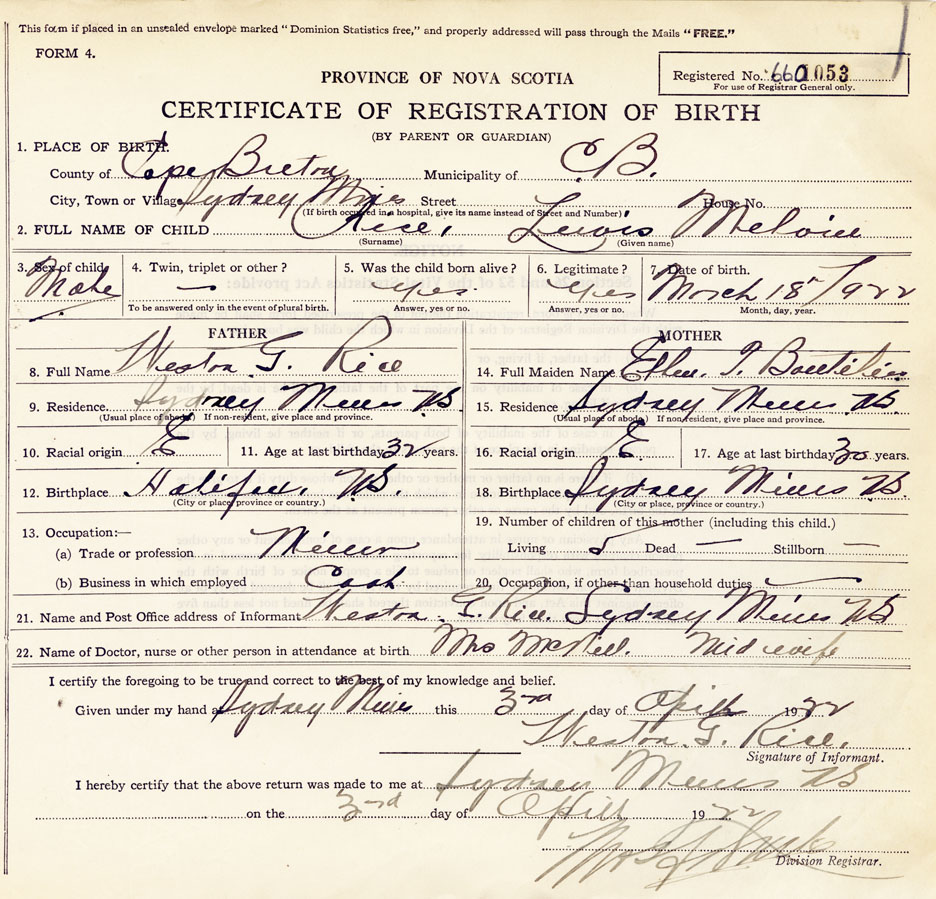 This form if placed in an unsealed envelope marked "Dominion Statistics free," and properly addressed will pass through the Mails "FREE."
FORM 4.
Registered No. 660 1053
For use of Registrar General only.
PROVINCE OF NOVA SCOTIA
CERTIFICATE OF REGISTRATION OF BIRTH
(BY PARENT OR GUARDIAN)
1. PLACE OF BIRTH.
County of Cape Breton Municipality of C B.
City, Town or Village Sydney Mines Street House No.
(If birth occured in a hospital, give its name instead of Street and Number)
2. FULL NAME OF CHILD Rice, Lewis Melvin
(Surname) (Given name)
3. Sex of child 4. Twin, triplet or other? 5. Was the child born alive? 6. Legitimate? 7. Date of birth.
Male — yes. yes March 18/1922
To be answered only in the event of plural birth. Answer, yes or no. Answer, yes or no. Month, day, year.
FATHER MOTHER
8. Full Name Weston G. Rice 14. Full Maiden Name Ellen. J. Boutilier
9. Residence. Sydney Mines NS. 15. Residence Sydney Mines NS.
(Usual place of abode) If non-resident, give place and province. (Usual place of abode) If non-resident, give place and province.
10. Racial origin E 11. Age at last birthday 32 years. 16. Racial origin E. 17. Age at last birthday 30 years.
12. Birthplace Halifax. NS. 18. Birthplace Sydney Mines NS.
(City or place, province or country.) (City or place, province or country.)
13. Occupation:— 19. Number of children of this mother (including this child.)
(a) Trade or profession Miner Living 5 Dead — Stillborn —
(b) Business in which employed 20. Occupation, if other than household duties —
21. Name and Post Office address of Informant Weston G. Rice. Sydney Mines NS
22. Name of Doctor, nurse or other person in attendance at birth Mrs McNeil. Midwife
I certify the foregoing to be true and correct to the best of my knowledge and belief.
Given under my hand a Sydney Mines this 3rd day of April 1922
Weston. G. Rice.
Signature of Informant.
I hereby certify that the above return was made to me at Sydney Mines NS
on the 3rd day of April 1922
Division Registrar.